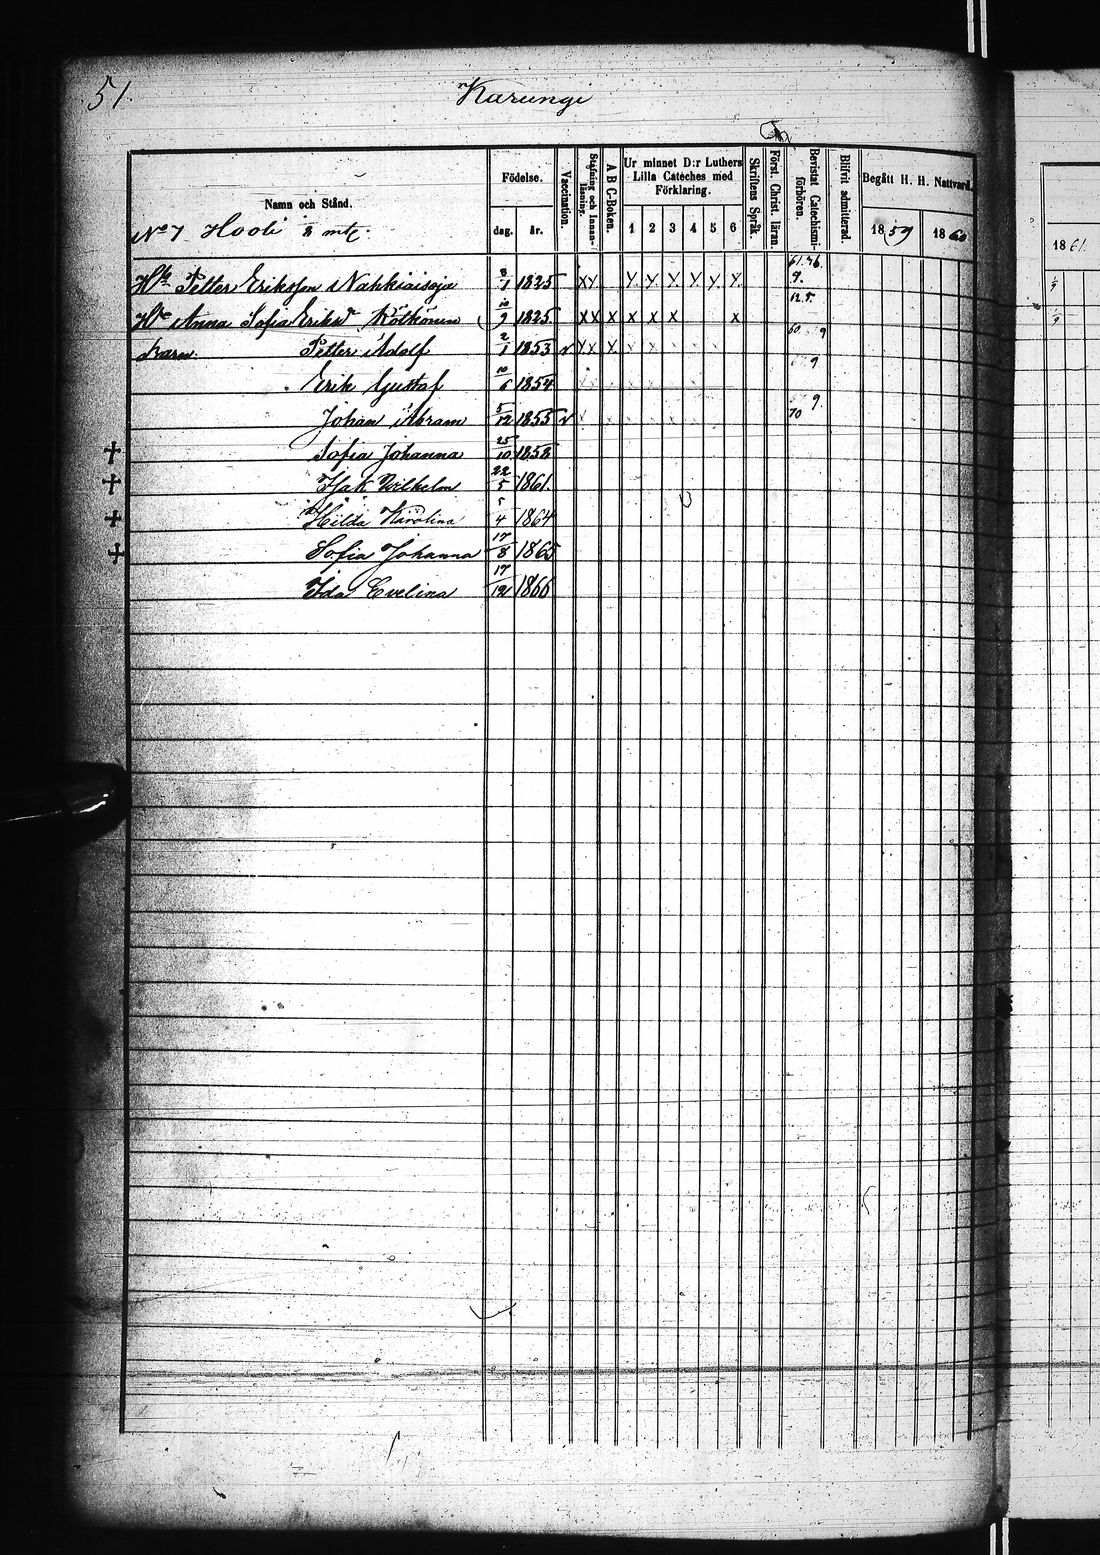 51.
Karungi
Namn och Stånd.
Födelse.
dag. år.
Vaccination.
Stafning och Innan-läsning.
A B C-Boken.
Ur minnet D:r Luthers Lilla Cateches med Förklaring.
1 2 3 4 5 6
Skriftens Språk.
Först. Christ. läran.
Bevistat Catechismi-förhören.
Blifvit admitterad.
Begått H. H. Nattvard.
1859 1860
1861.
No 7 Hooli mtl.
Petter Eriksson Nahkiaisoja 8/1 1825 x x y y y y y y 61. 9.
Hu Anna Sofia Eriksd Kölkönen 10/9 1825 x x x x x x x 12.
Barn: Petter Adolf 2/1 1853 v x x x 60 9
Erik Gustaf 10/6 1854 9
Johan Abram 5/12 1855 v 9 70
+ Sofia Johanna 25/10 1858
+ Isak Wilhelm 22/5 1861.
+ Hilda Karolina 5/4 1864
+ Sofia Johanna 17/8 1865
Ida Evelina 17/12 1866